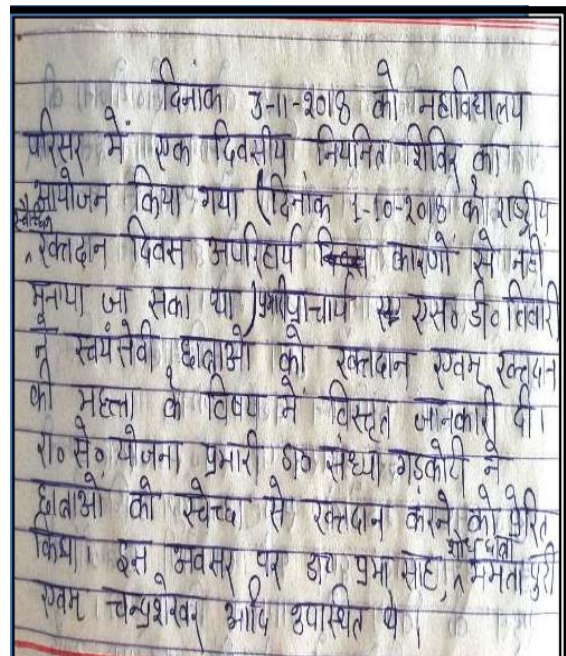 दिनांक 3-11-2018 को महाविद्यालय
परिसर में एक दिवसीय नियमित शिविर का
आयोजन किया गया (दिनांक 1-10-2018 को राष्ट्रीय
स्वैच्छिक
रक्तदान दिवस अपरिहार्य कारणों से नहीं
मनाया जा सका था) प्रभारी प्राचार्य एस० डी० तिवारी
ने स्वयंसेवी छात्राओं को रक्तदान एवम् रक्तदान
की महत्ता के विषय में विस्तृत जानकारी दी।
रा० से० योजना प्रभारी डा० संध्या गड़कोटी ने
छात्राओं को स्वेच्छा से रक्तदान करने को प्रेरित
किया। इस अवसर पर डा० प्रभा साह, ममता पुरी
एवम् चन्द्रशेखर आदि उपस्थित थे।